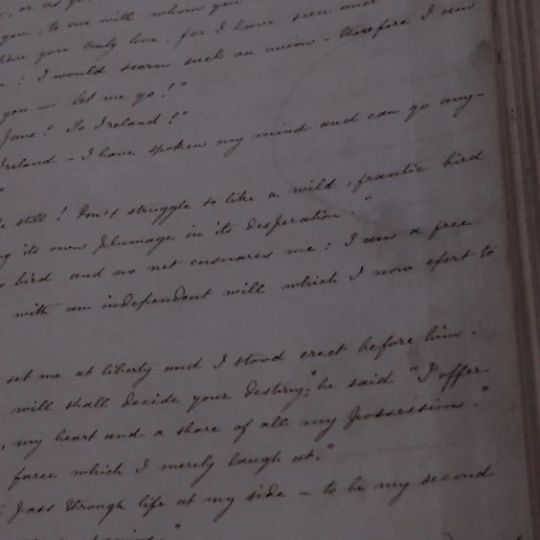 , or as good
you, to one with whom you
whom you truly love, for I have seen and
: I would scorn such an union – therefore I am
you – let me go!"
Jane? To Ireland?"
Ireland – I have spoken my mind and can go any-
"
be still! Don't struggle so like a wild, frantic bird
its own plumage in its desperation."
bird and no net ensnares me: I am a free
with an independent will which I now exert to
set me at liberty and I stood erect before him.
will shall decide your destiny," he said "I offer
, my heart and a share of all my possessions."
farce which I merely laugh at."
pass through life at my side – to be my second
"